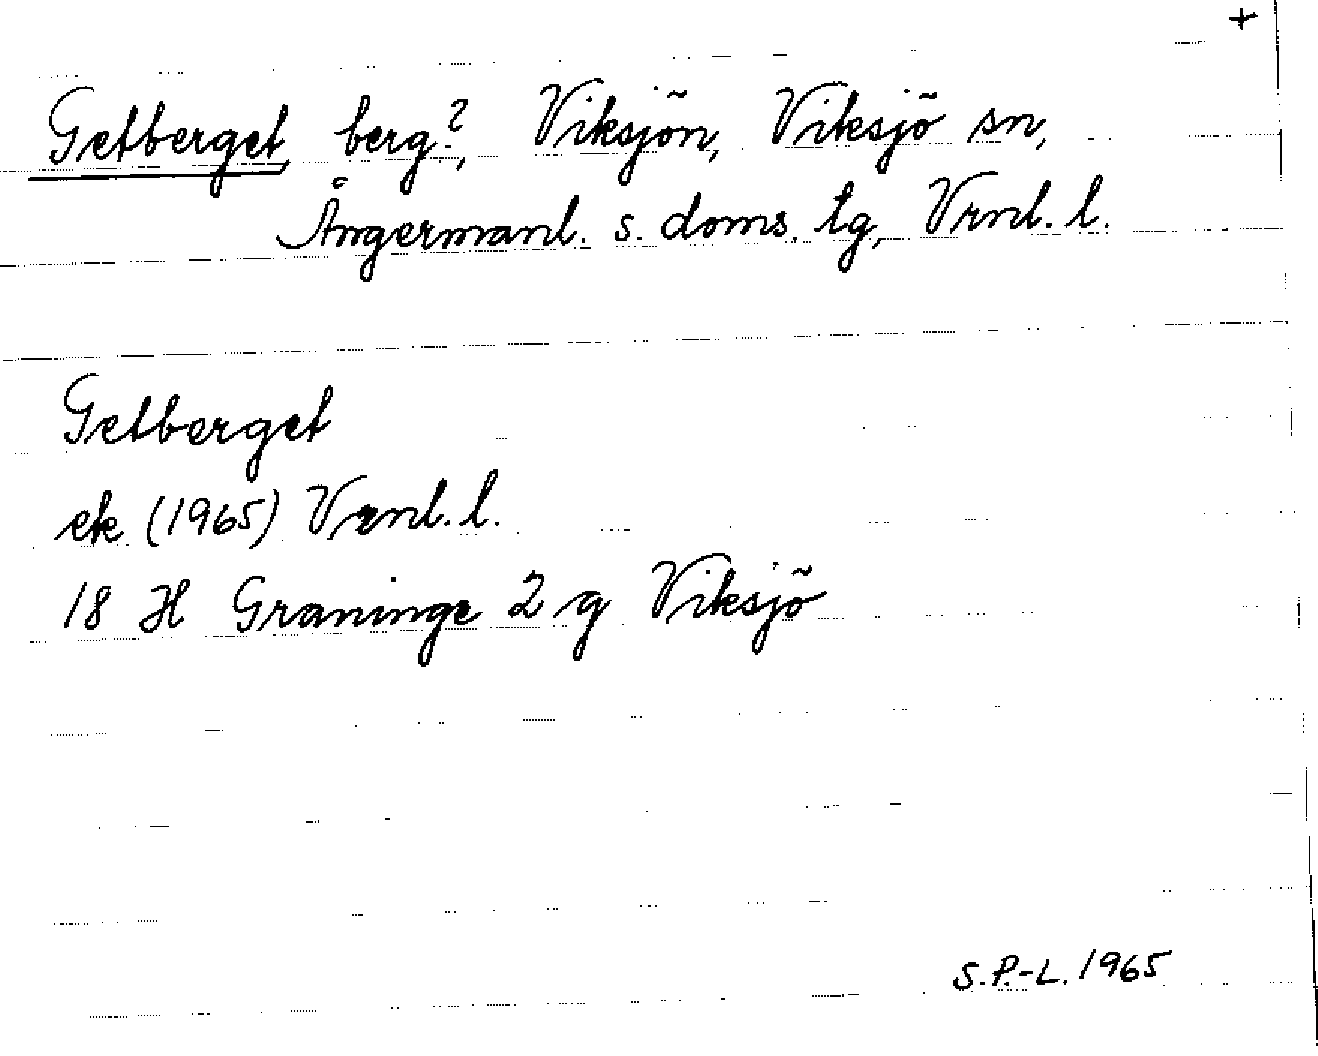 +
Getberget, berg?, Viksjön, Viksjö sn,
Ångermanl. s. doms. tg, Vrnl. l.
Getberget
ek (1965) Vrnl. l.
18 H Graninge 2 g Viksjö
S.P.-L. 1965